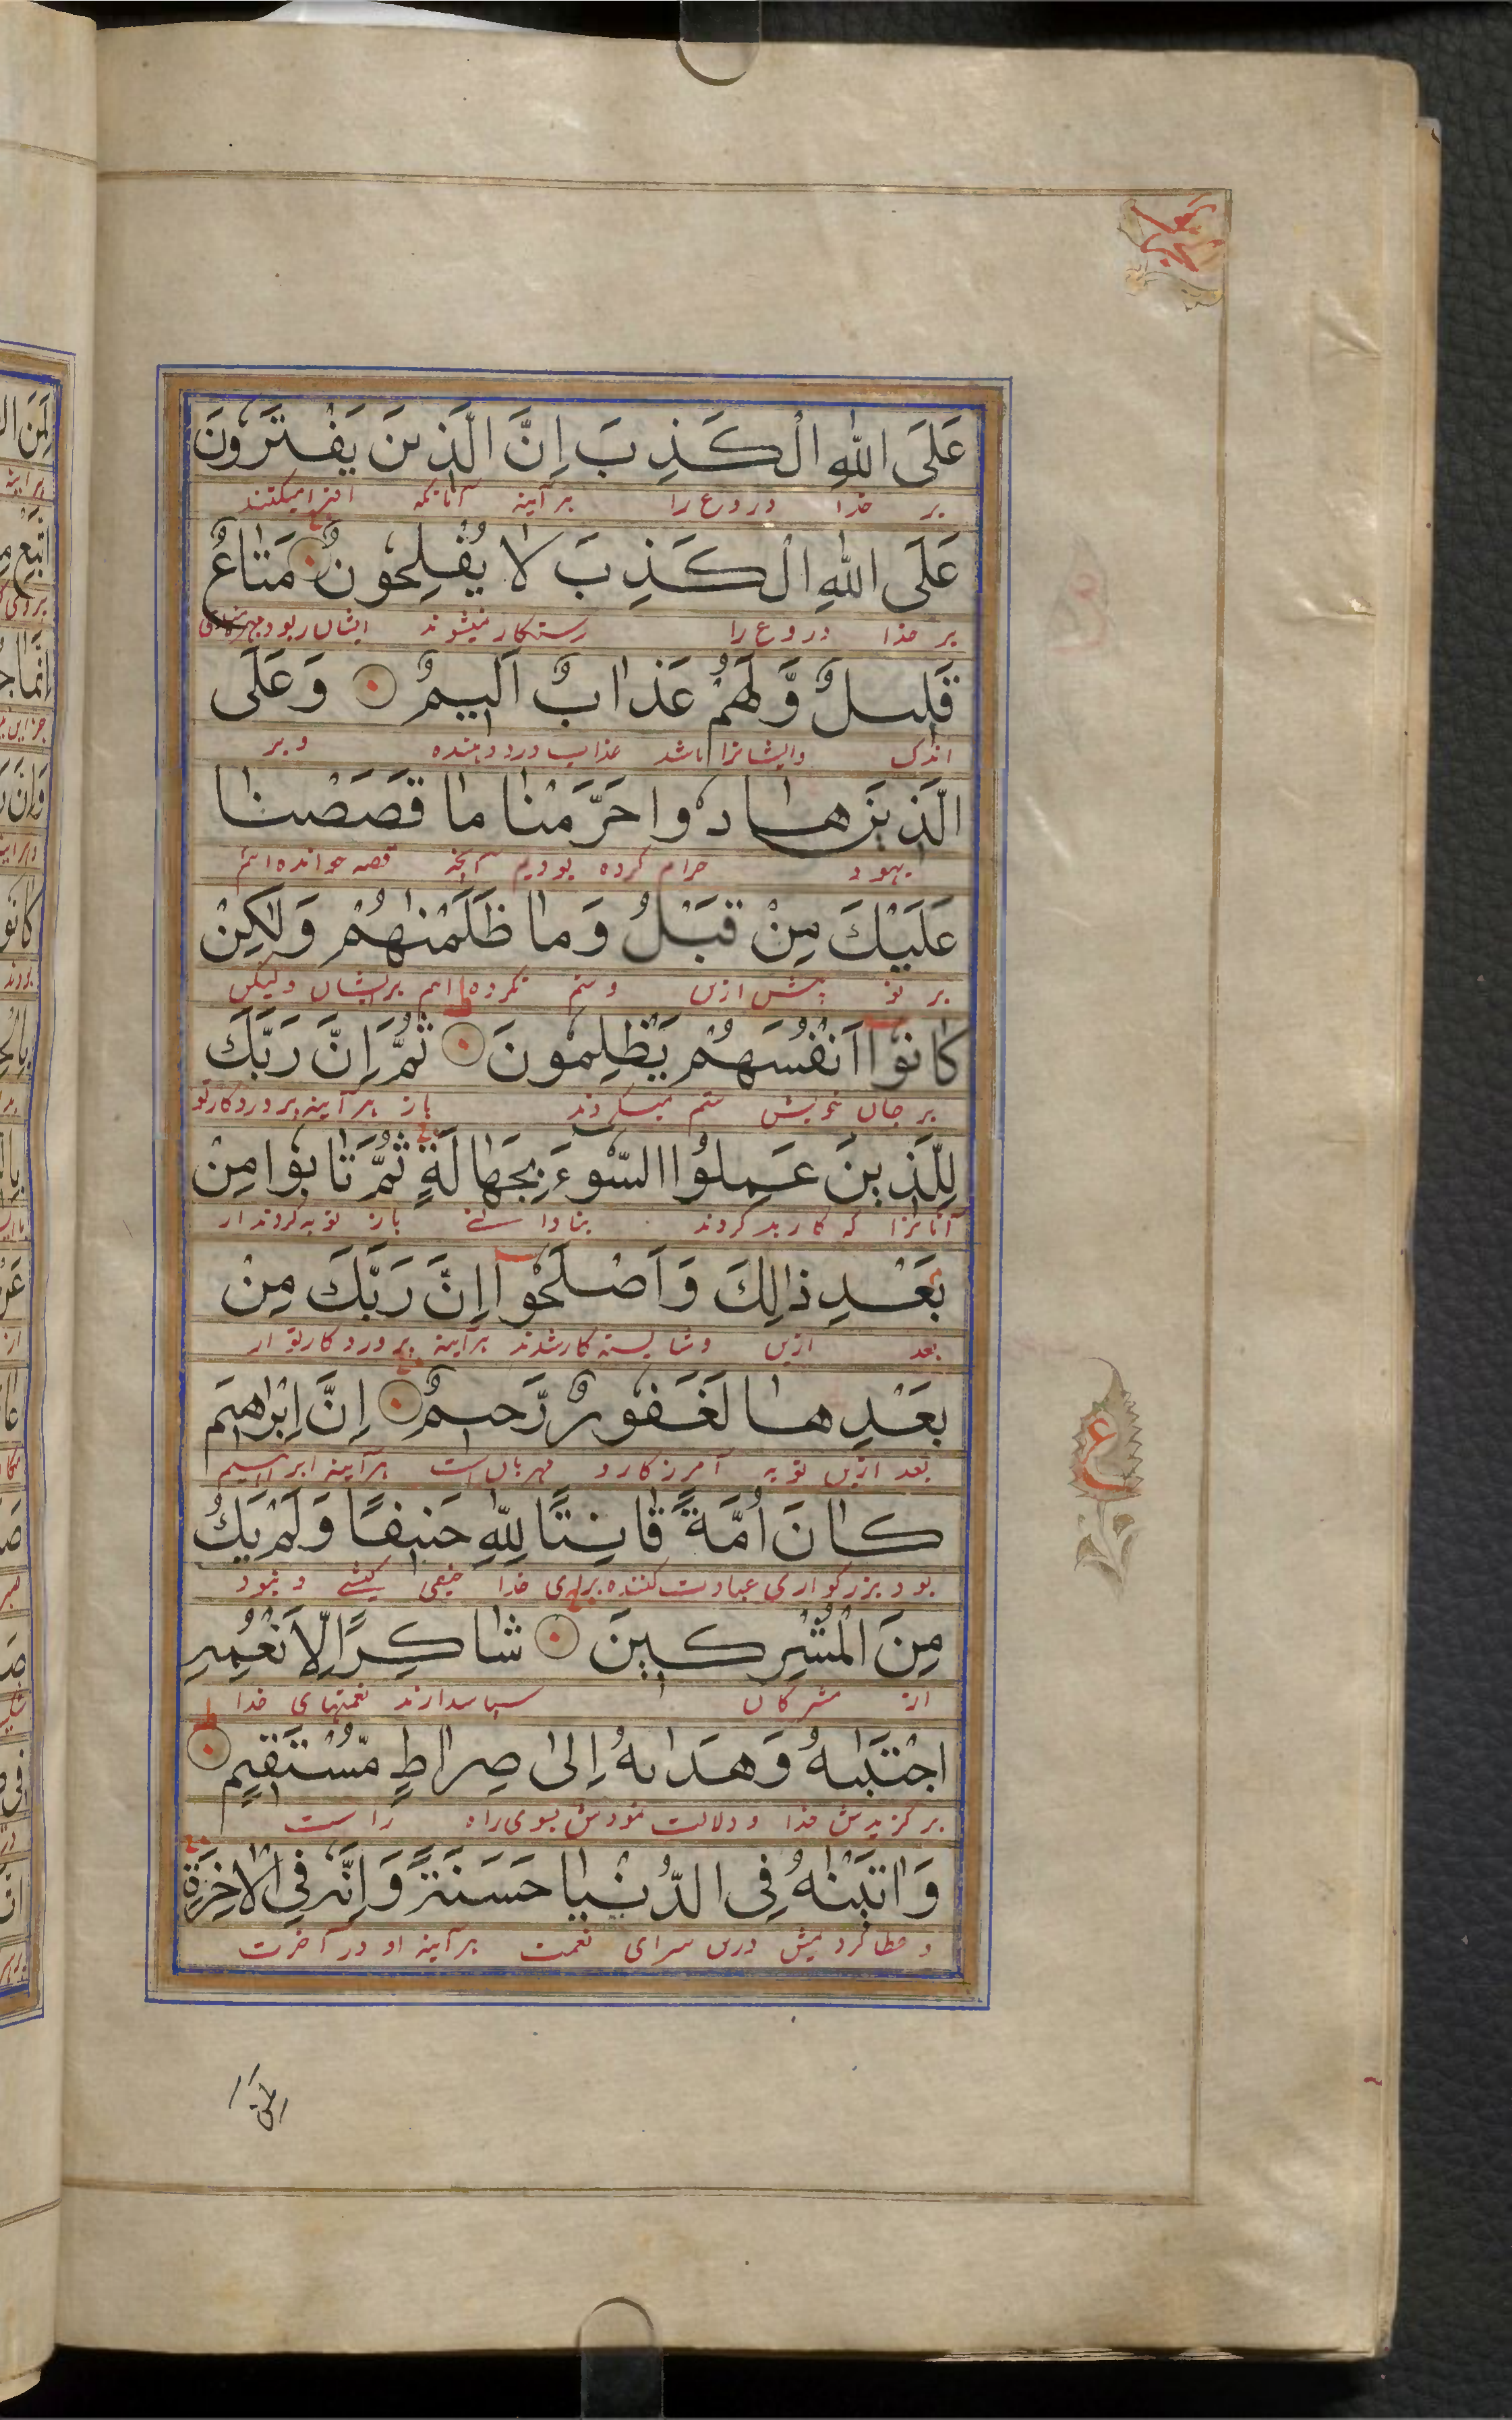 عَلَى اللّٰهِ الْكَذِبَ اِنَّ الَّذِيْنَ يَفْتَرُوْنَ
بر خدا دروغ را هر آینه آنانکه افترا میکنند
عَلَى اللّٰهِ الْكَذِبَ لَا يُفْلِحُوْنَ مَتَاعٌ
بر خدا دروغ را رستکار نمیشوند ایشان را بود
قَلِيْلٌ وَّلَهُمْ عَذَابٌ اَلِيْمٌ وَعَلَى
اندک وایشانرا باشد عذاب درد دهنده و بر
الَّذِيْنَ هَادُوْا حَرَّمْنَا مَا قَصَصْنَا
یهود حرام کرده بودیم آنچه قصه خوانده ایم
عَلَيْكَ مِنْ قَبْلُ وَمَا ظَلَمْنٰهُمْ وَلٰكِنْ
بر تو پیش ازین وستم نکرده ایم بر ایشان ولیکن
كَانُوْٓا اَنْفُسَهُمْ يَظْلِمُوْنَ ثُمَّ اِنَّ رَبَّكَ
بر جان خویش ستم میکردند باز هر آینه پروردکار تو
لِلَّذِيْنَ عَمِلُوا السُّوْٓءَ بِجَهَالَةٍ ثُمَّ تَابُوْا مِنْ
آنانرا که کار بد کردند بنادانی باز توبه کردند از
بَعْدِ ذٰلِكَ وَاَصْلَحُوْٓا اِنَّ رَبَّكَ مِنْ
بعد ازین وشایسته کار شدند هر آینه پروردکار تو از
بَعْدِهَا لَغَفُوْرٌ رَّحِيْمٌ اِنَّ اِبْرٰهِيْمَ
بعد ازین توبه آمرزکار و مهربان است هر آینه ابراهیم
كَانَ اُمَّةً قَانِتًا لِّلّٰهِ حَنِيْفًا وَلَمْ يَكُ
بود بزرکواری عبادت کننده برای خدا حنیفی کیشی و نبود
مِنَ الْمُشْرِكِيْنَ شَاكِرًا لِّاَنْعُمِهٖ
از مشرکان سپاسدارند نعمتهای خدا
اجْتَبٰىهُ وَهَدٰىهُ اِلٰى صِرَاطٍ مُّسْتَقِيْمٍ
برکزیدش خدا و دلالت نمودش بسوی راه راست
وَاٰتَيْنٰهُ فِى الدُّنْيَا حَسَنَةً وَاِنَّهٗ فِى الْاٰخِرَةِ
و عطا کردیمش درین سرای نعمت هر آینه او در آخرت
ع